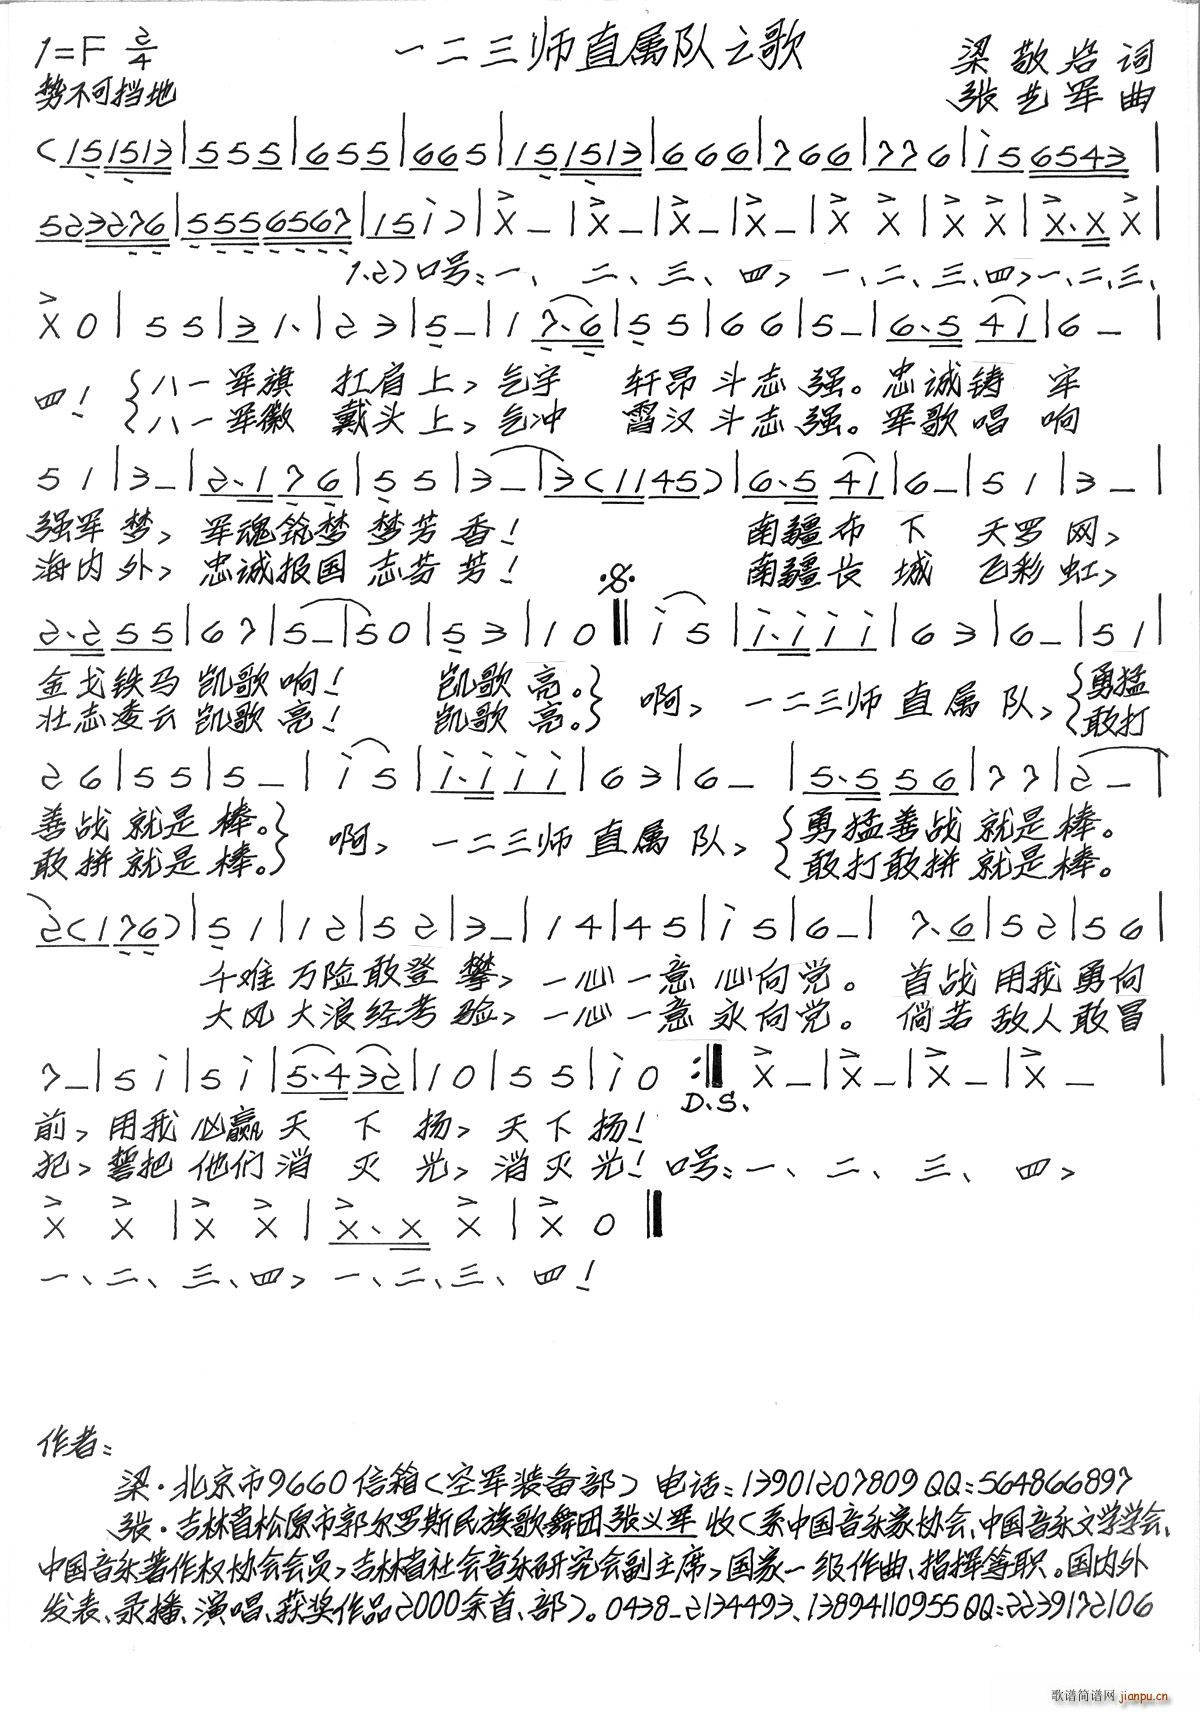 1=F 2/4 一二三师直属队之歌 梁敬岩 词
势不可挡地 张艺军 曲
(151513|555|655|665|151513|666|766|776|i56543|
523276|5556567|15i)|X_|X_|X_|X_|X X|X X|X.X X|
1.2)口号:一、二、三、四,一、二、三、四,一、二、三、
X0|55|31.|23|5_|17.6|55|66|5_|6.541|6_|
四!{八一军旗 扛肩上,气宇 轩昂斗志强。忠诚铸 牢
八一军徽 戴头上,气冲 霄汉斗志强。军歌唱 响
51|3_|2.176|55|3_|3(1145)|6.541|6_|51|3_|
强军梦,军魂筑梦 梦芳香! 南疆布 下 天罗网,
海内外,忠诚报国 志芬芳! 南疆长 城 飞彩虹,
2.255|67|5_|50|53|10‖i5|i.iii|63|6_|51|
金戈铁马 凯歌响! 凯歌 亮。}啊,一二三师直属队,{勇猛
壮志凌云 凯歌亮! 凯歌 亮。 敢打
26|55|5_|i5|i.iii|63|6_|5.556|77|2_|
善战就是棒。}啊,一二三师直属队,{勇猛善战就是棒。
敢拼就是棒。 敢打敢拼就是棒。
2(176)|51|12|52|3_|14|45|i5|6_|7.6|52|56|
千难万险敢登攀,一心一意心向党。首战用我勇向
大风大浪经考验,一心一意永向党。倘若敌人敢冒
7_|5i|5i|5.432|10|55|i0:‖X_|X_|X_|X_|
D.S.
前,用我必赢天下扬,天下扬!
犯,誓把他们消灭光,消灭光!口号:一、二、三、四,
X X|X X|X.X X|X0‖
一、二、三、四,一、二、三、四!
作者:
梁·北京市9660信箱(空军装备部) 电话:13901207809 QQ:564866897
张·吉林省松原市郭尔罗斯民族歌舞团张义军 收(系中国音乐家协会、中国音乐文学学会、
中国音乐著作权协会会员,吉林省社会音乐研究会副主席,国家一级作曲、指挥等职。国内外
发表、录播、演唱、获奖作品2000余首、部)。0438-2134493、13894110955 QQ:2239172106
歌谱简谱网 jianpu.cn